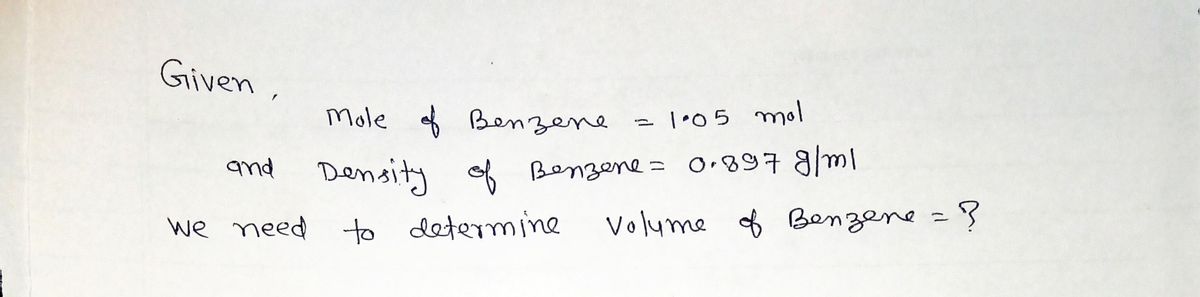 Given,
Mole of Benzene = 1.05 mol
and Density of Benzene = 0.897 g/ml
We need to determine Volume of Benzene = ?